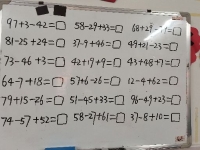 97+3-42=□ 58-29+33=□ 68+29-□=□
81-25+24=□ 37-9+46=□ 49+21-23=□
73-46+3=□ 42+19+9=□ 43+48+7=□
64-7+18=□ 57+6-26=□ 12-4+62=□
79+15-26=□ 51-45+33=□ 96-49+23=□
74-57+52=□ 58-27+61=□ 37-8+10=□